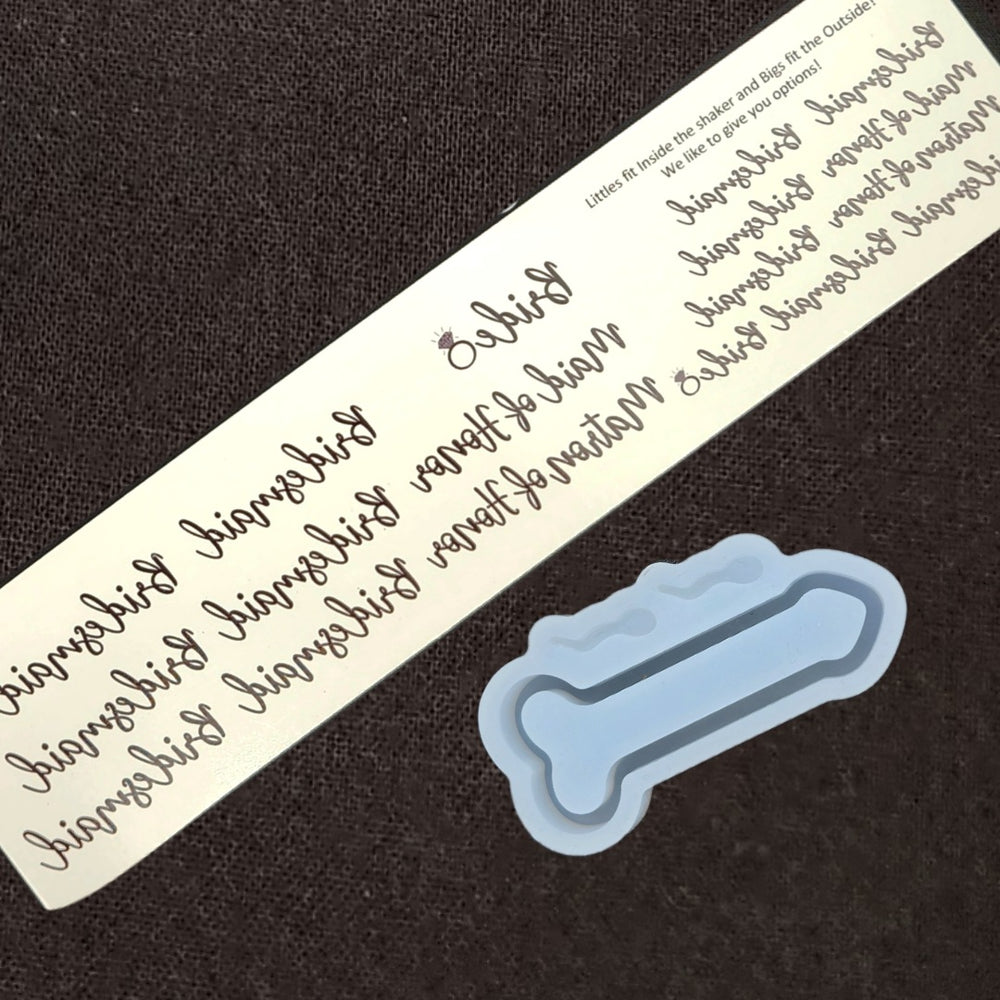 Littles fit Inside the shaker and Bigs fit the Outside!
We like to give you options!
Bridesmaid Bridesmaid Bride
Bridesmaid Bridesmaid Maid of Honor
Bridesmaid Bridesmaid Matron of Honor
Bridesmaid Bridesmaid
Bridesmaid Maid of Honor
Bridesmaid Matron of Honor
Bride Bridesmaid Bridesmaid